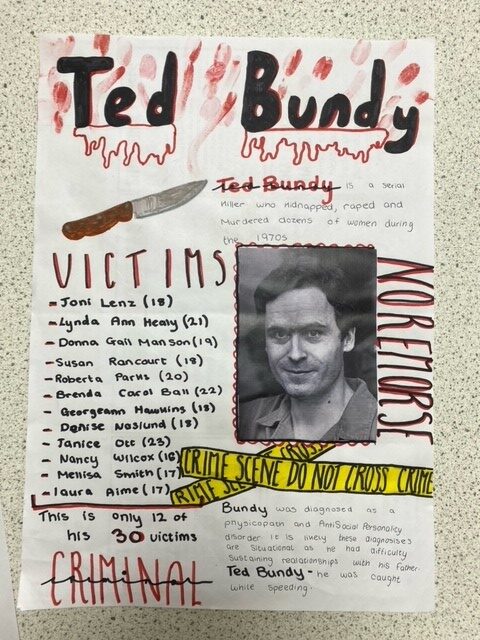 Ted Bundy
Ted Bundy is a serial
killer who kidnapped, raped and
Murdered dozens of women during
the 1970s
VICTIMS
- Joni Lenz (18)
- Lynda Ann Healy (21)
- Donna Gail Manson (19)
- Susan Rancourt (18)
- Roberta Parks (20)
- Brenda Carol Ball (22)
- Georgeann Hawkins (18)
- Denise Naslund (18)
- Janice Ott (23)
- Nancy Wilcox (16)
- Mellisa Smith (17)
- Laura Aime (17)
This is only 12 of
his 30 victims
CRIMINAL
criminal
NO REMORSE
CRIME SCENE DO NOT CROSS CRIME
CRIME SCE
CROSS
Bundy was diagnosed as a
physicopath and AntiSocial Personality
disorder it is likely these diagnosises
are situational as he had difficulty
sustaining realationships with his father.
Ted Bundy - he was caught
while speeding.